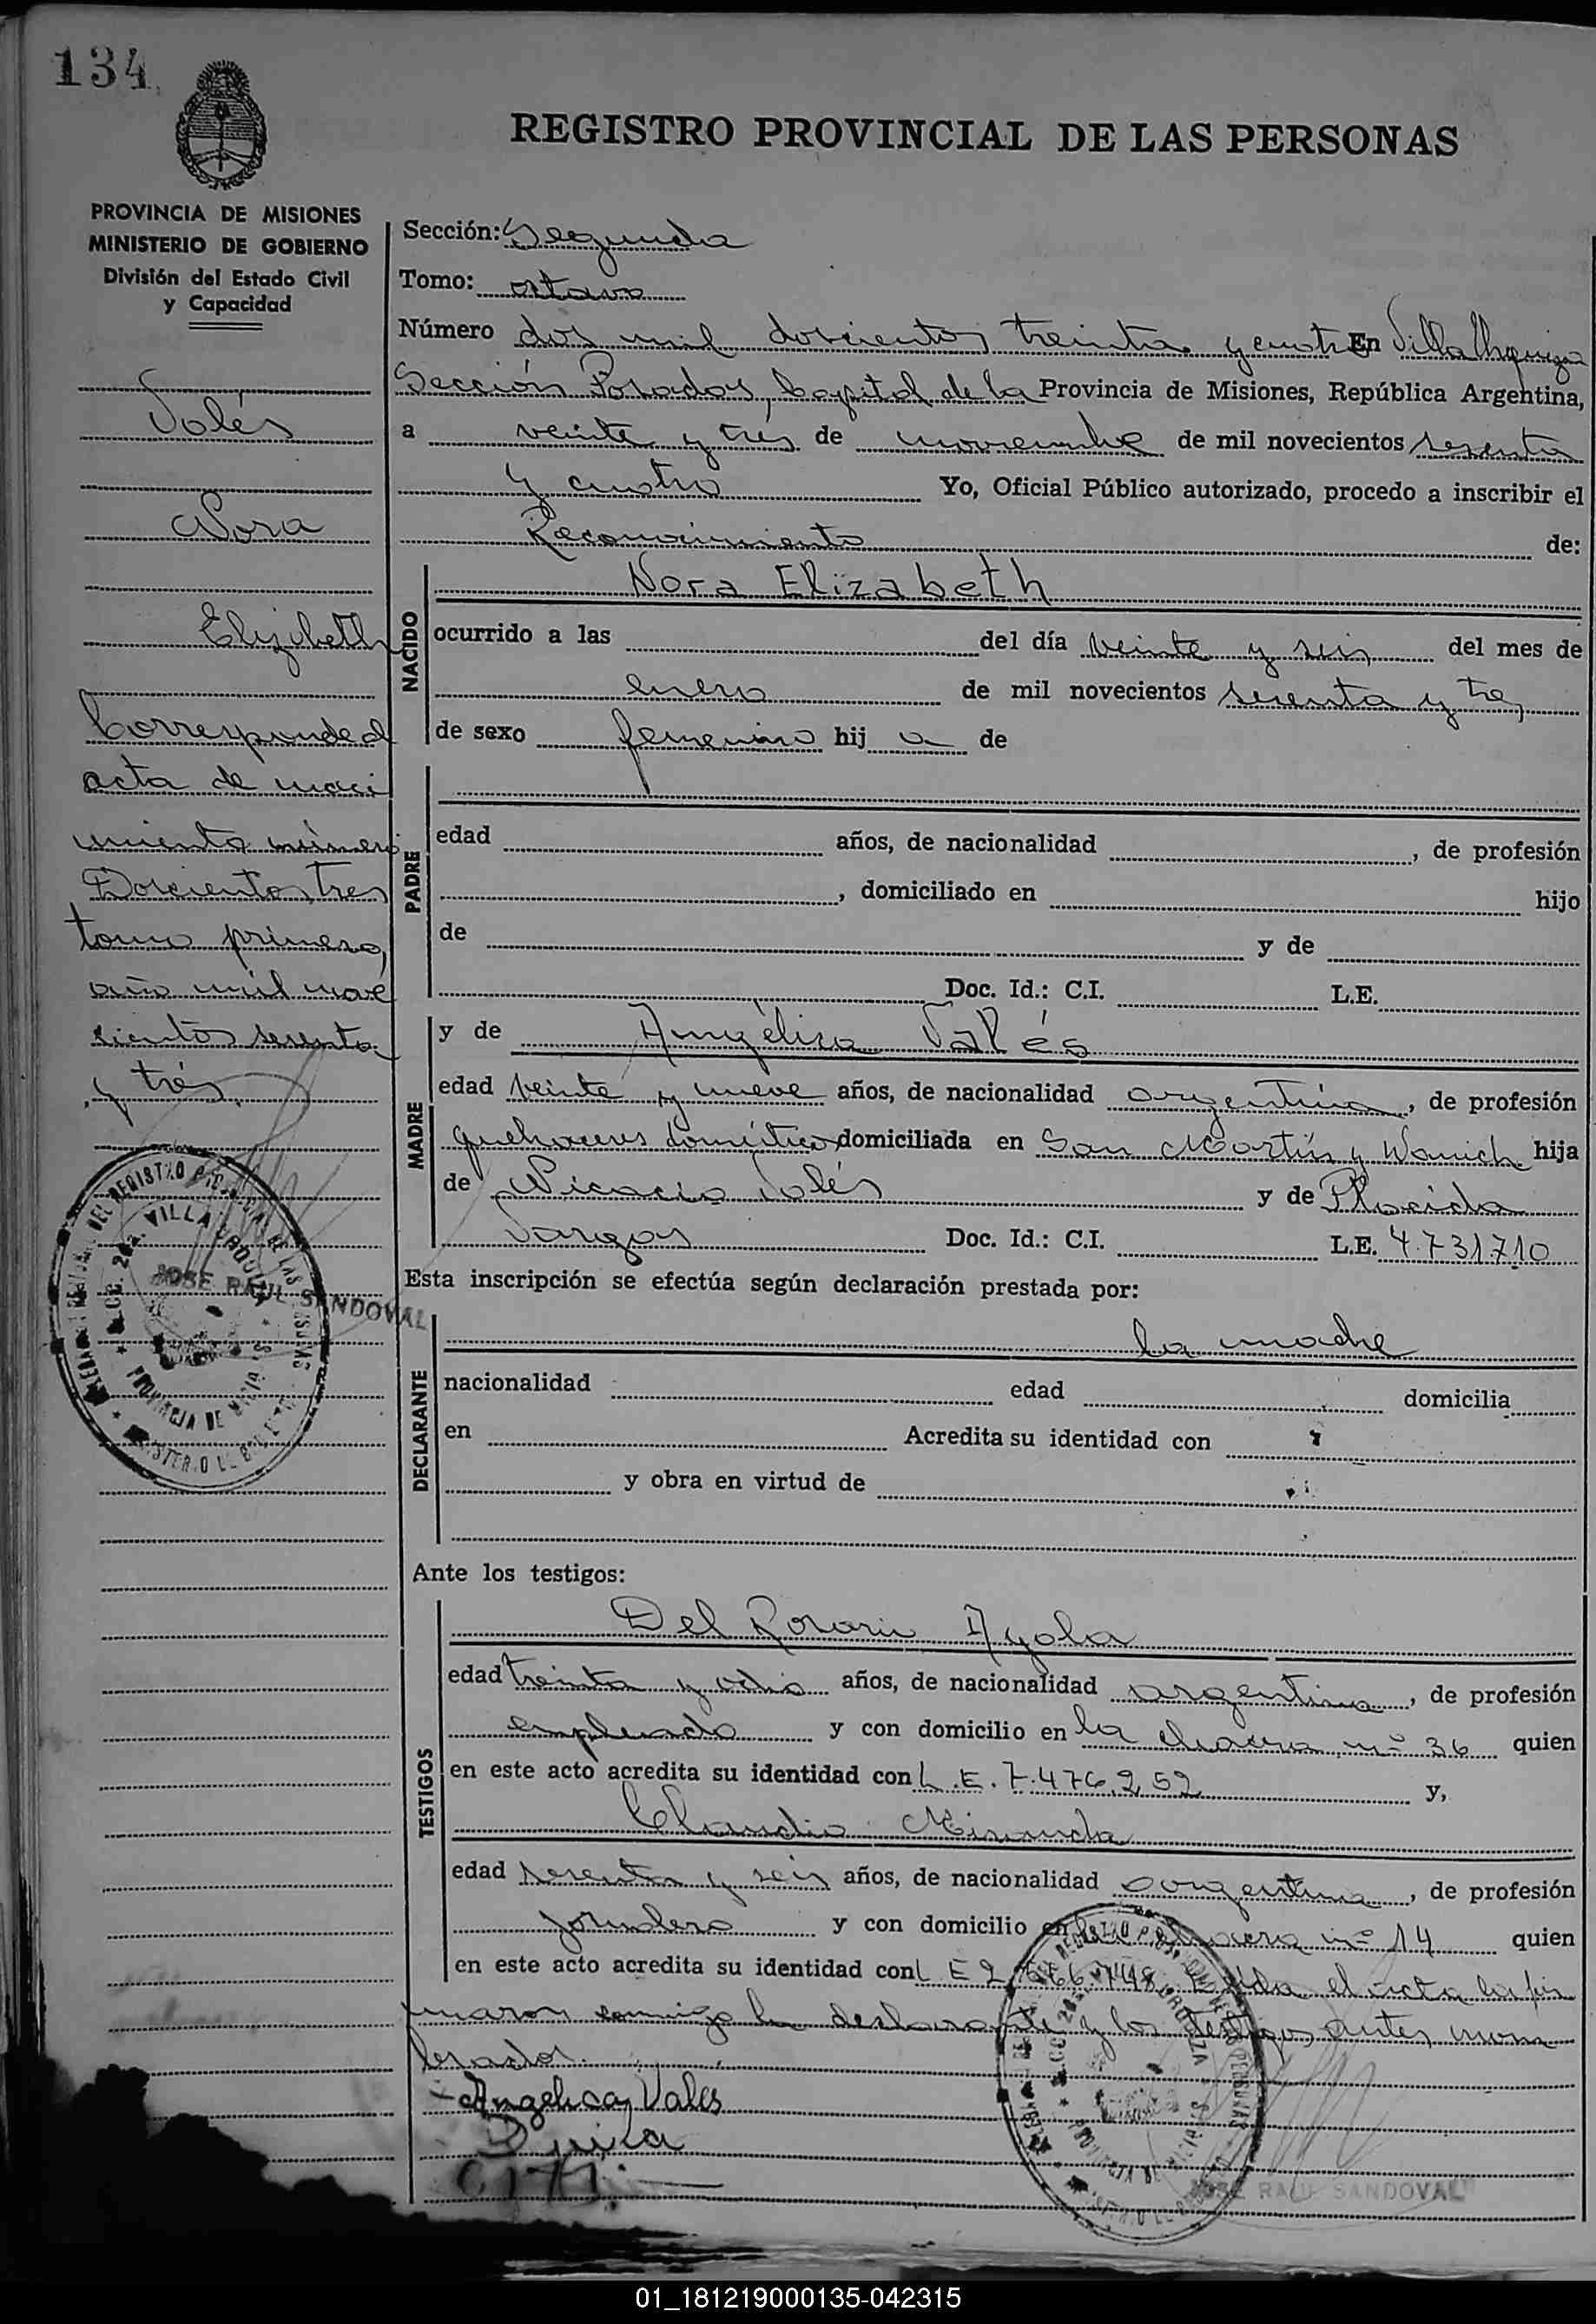 134
REGISTRO PROVINCIAL DE LAS PERSONAS
PROVINCIA DE MISIONES
MINISTERIO DE GOBIERNO
División del Estado Civil
y Capacidad
Valés
Nora
Elizabeth
Corresponde al
acta de naci
miento número
Doscientos tres
tomo primero,
año mil nove
cientos sesenta
y trés.
JOSE RAUL SANDOVAL
Sección: Segunda
Tomo: octavo
Número dos mil doscientos treinta y cuatro En Villa Urquiza
Sección Posadas, Capital de la Provincia de Misiones, República Argentina,
a veinte y trés de noviembre de mil novecientos sesenta
y cuatro Yo, Oficial Público autorizado, procedo a inscribir el
Reconocimiento de:
NACIDO
Nora Elizabeth
ocurrido a las del día veinte y seis del mes de
enero de mil novecientos sesenta y tres
de sexo femenino hij a de
PADRE
edad años, de nacionalidad , de profesión
, domiciliado en hijo
de y de
Doc. Id.: C.I. L.E.
MADRE
y de Angélica Valés
edad veinte y nueve años, de nacionalidad argentina, de profesión
quehaceres domésticos domiciliada en San Martín y hija
de Nicacio Valés y de Placida
Vargas Doc. Id.: C.I. L.E. 4.731.710
Esta inscripción se efectúa según declaración prestada por:
DECLARANTE
la madre
nacionalidad edad domicilia
en Acredita su identidad con
y obra en virtud de
Ante los testigos:
TESTIGOS
Del Rosario Ayala
edad treinta y ocho años, de nacionalidad argentina, de profesión
empleado y con domicilio en la chacra nº 36 quien
en este acto acredita su identidad con L.E. 7.476.252 y,
Claudio Miranda
edad sesenta y seis años, de nacionalidad argentina, de profesión
jornalero y con domicilio en la chacra nº 14 quien
en este acto acredita su identidad con L E Leída el acta la fir
maron conmigo la declarante y los testigos antes men
Angelica Valés
JOSE RAUL SANDOVAL
01_181219000135-042315